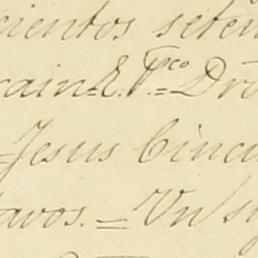 cientos seten
cain=E. Pco=Dro
=Jesus Cincu
tavos.=Un s